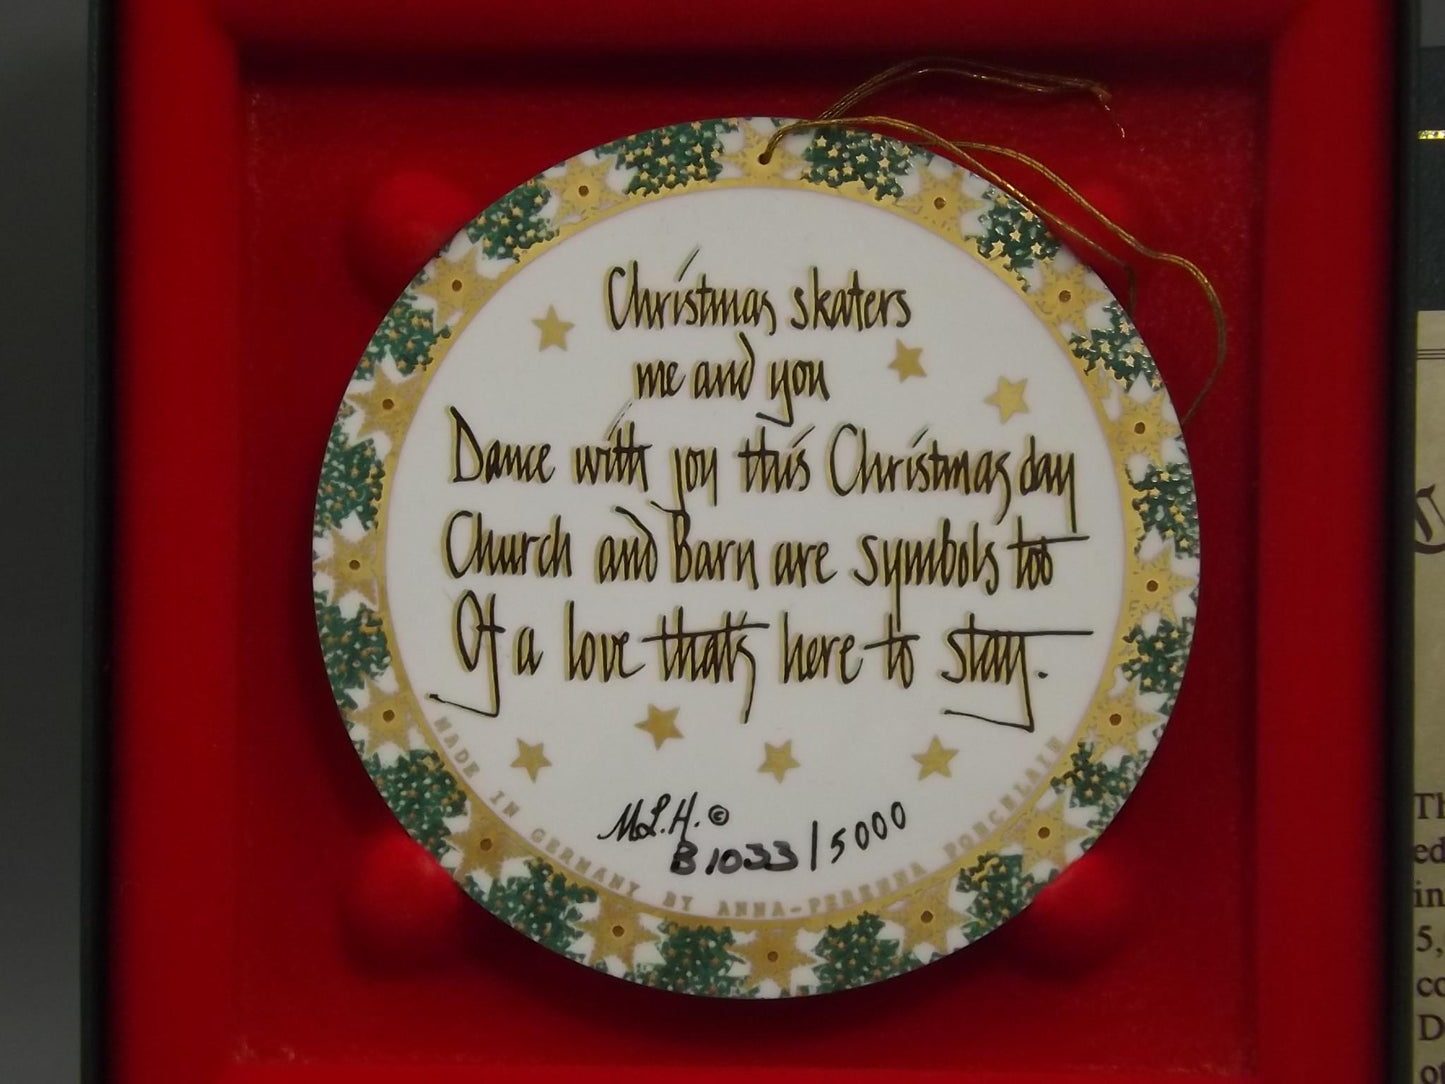 Christmas skaters
me and you
Dance with you this Christmas day
Church and Barn are symbols too
Of a love that's here to stay.
M.L.H. ©
B 1033/5000
MADE IN GERMANY BY ANNA-PERENNA PORCELAIN
Th
ed
in
5,
co
D
of